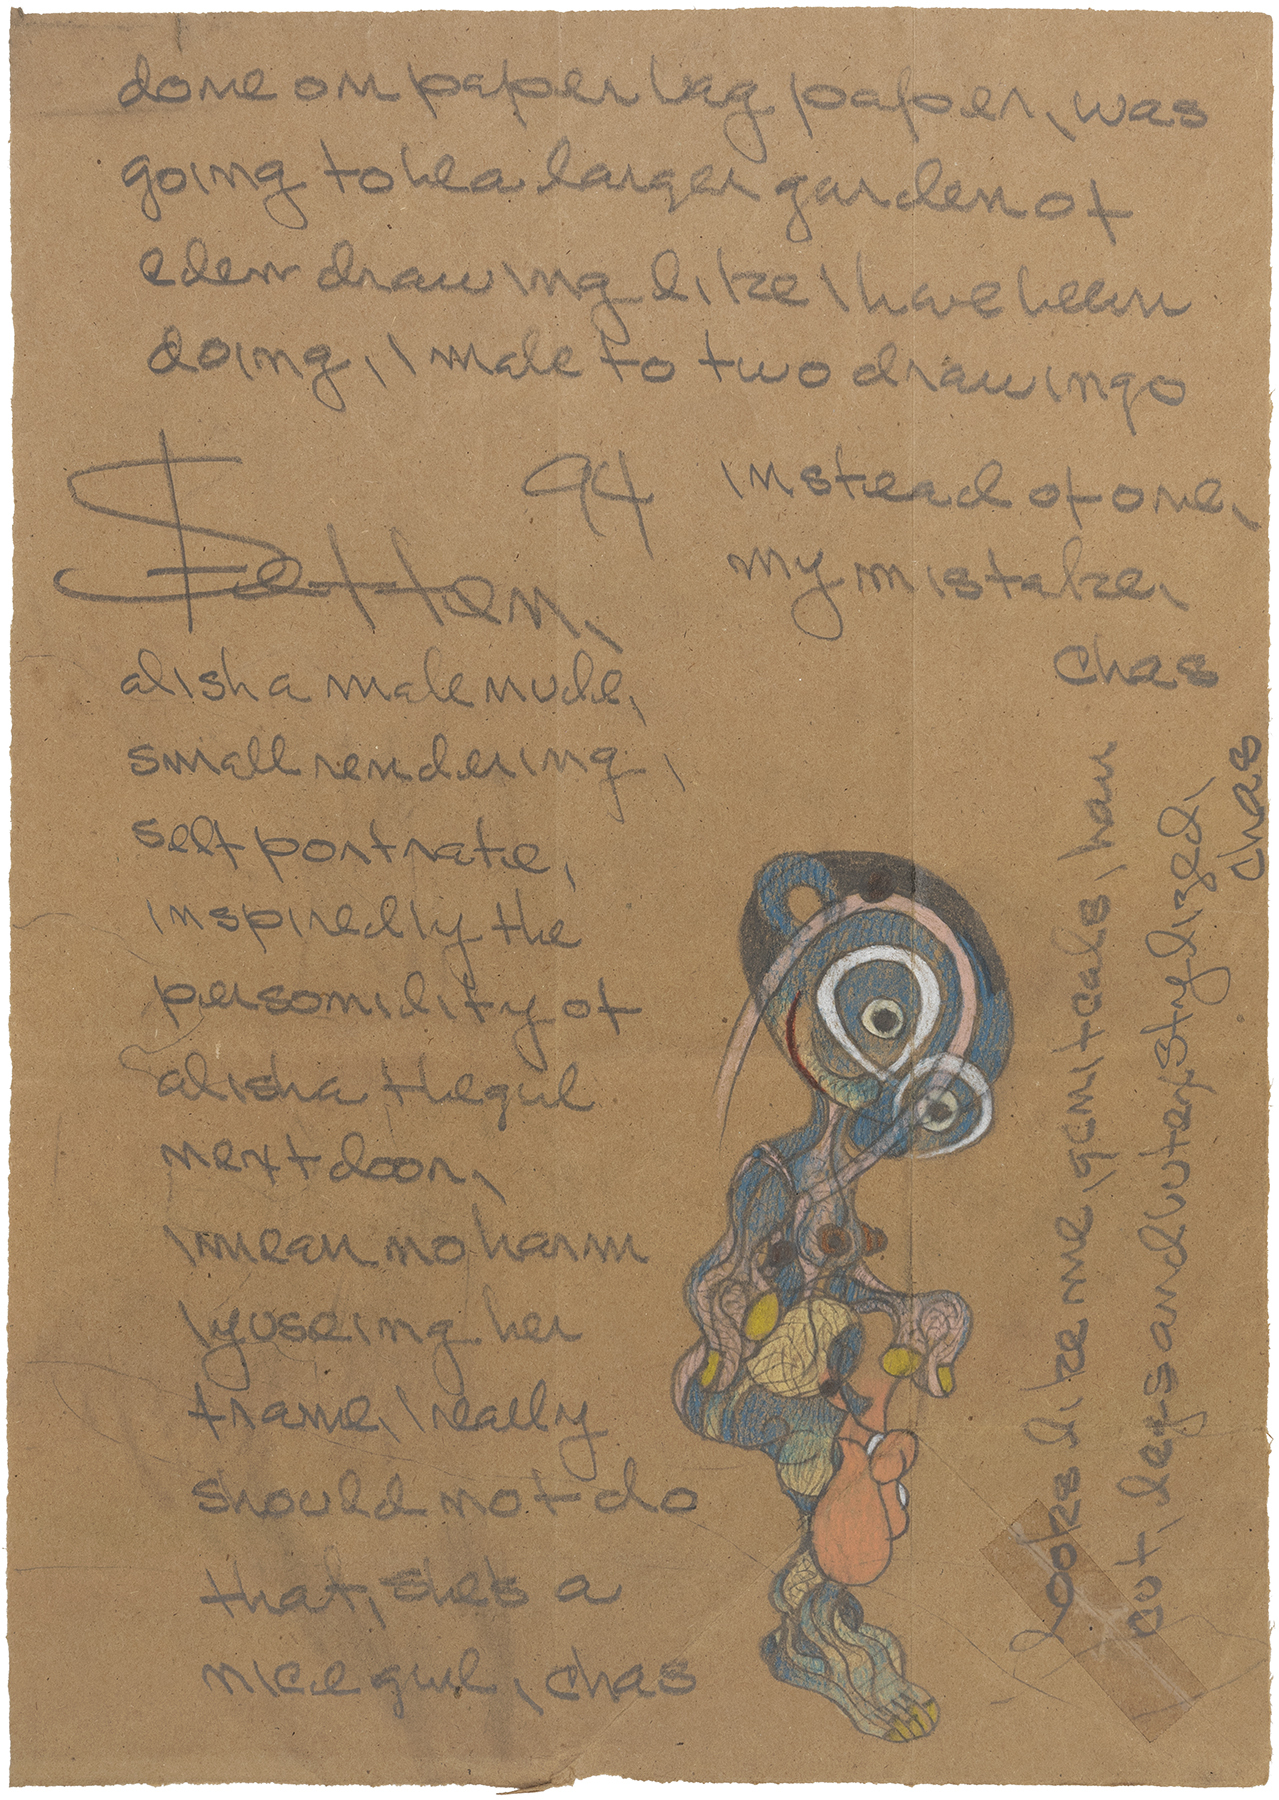 done on paper bag paper, was
going to be a larger garden of
eden drawing like I have been
doing, I made to two drawings
instead of one,
my mistake,
chas
94
alisha male nude,
small rendering,
self portrate,
inspired by the
personidity of
alisha the gul
next door,
I mean no harm
by useing her
frame, I really
should not do
that, she's a
nice gul, chas
Looks like me, geniteals, hair
cut, legs and
strylized,
chas